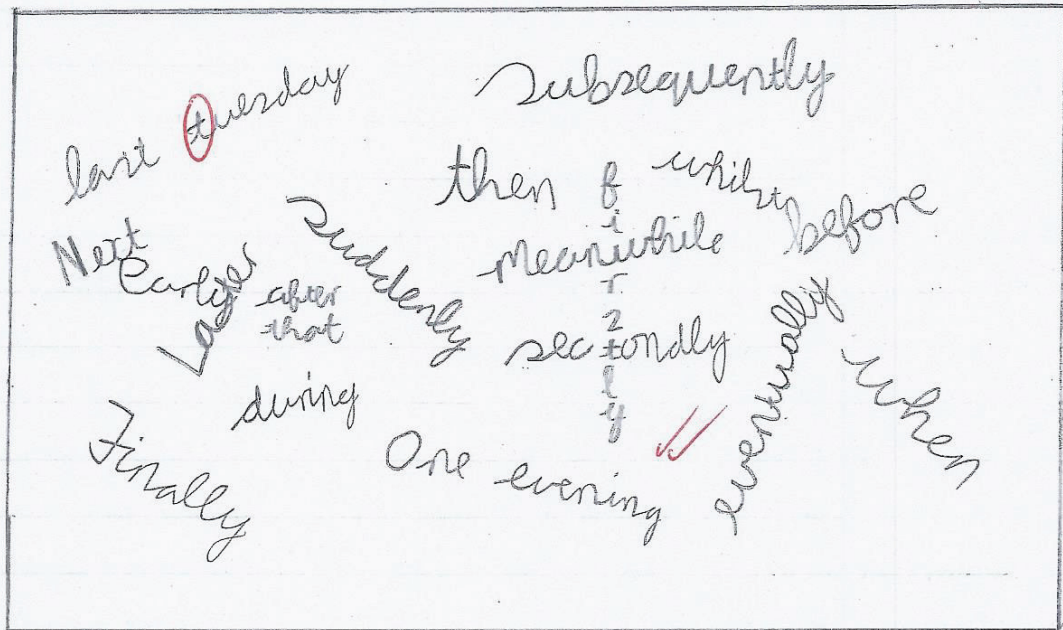 last tuesday
Subsequently
then
whilst
before
Next
Earlier
Suddenly
Meanwhile
firstly
Later
after
that
secondly
eventually
when
during
Finally
One evening